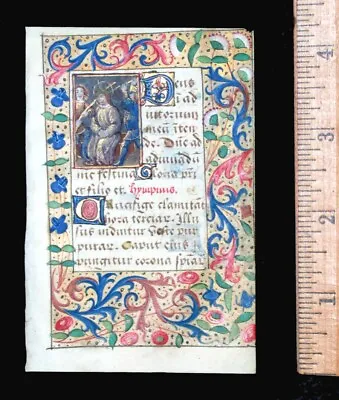 Deus
in ad
iutorium
meum inten
de. Dne ad
adiuuandū
me festina Gloria pri
et filio et. hympnus.
Crucifige clamitāt
hora terciar. Illu
sus induitur Veste pur
purar. Caput eius
pungitur corona spiar
4
3
2
1